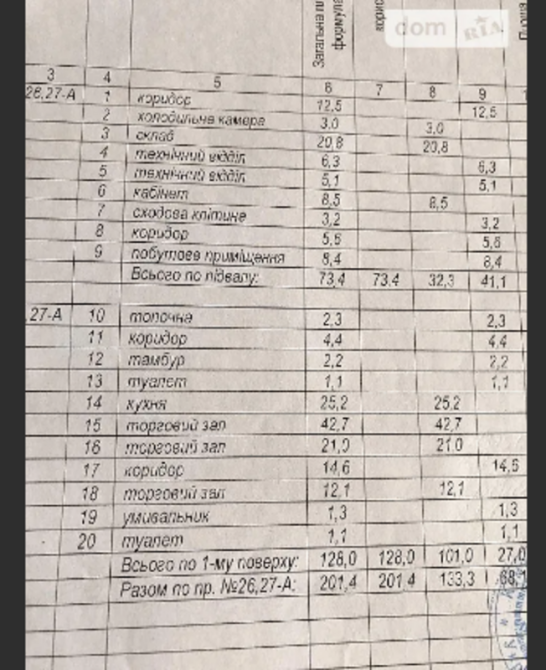 Загальна пл
формула
корис
Площа
dom RIA
3 4 5 6 7 8 9
26,27-А 1 коридор 12,5 12,5
2 холодильна камера 3,0 3,0
3 склад 20,8 20,8
4 технічний відділ 6,3 6,3
5 технічний відділ 5,1 5,1
6 кабінет 8,5 8,5
7 сходова клітине 3,2 3,2
8 коридор 5,6 5,6
9 побутове приміщення 8,4 8,4
Всього по підвалу: 73,4 73,4 32,3 41,1
27-А 10 топочна 2,3 2,3
11 коридор 4,4 4,4
12 тамбур 2,2 2,2
13 туалет 1,1 1,1
14 кухня 25,2 25,2
15 торговий зал 42,7 42,7
16 торговий зал 21,0 21,0
17 коридор 14,6 14,6
18 торговий зал 12,1 12,1
19 умивальник 1,3 1,3
20 туалет 1,1 1,1
Всього по 1-му поверху: 128,0 128,0 101,0 27,0
Разом по пр. №26,27-А: 201,4 201,4 133,3 68,1